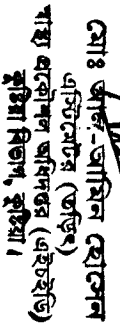 মোঃ আল-আমিন হোসেন
এস্টিমেটর
স্বাস্থ্য প্রকৌশল অধিদপ্তর (এইচইডি)
কুষ্টিয়া বিভাগ, কুষ্টিয়া।